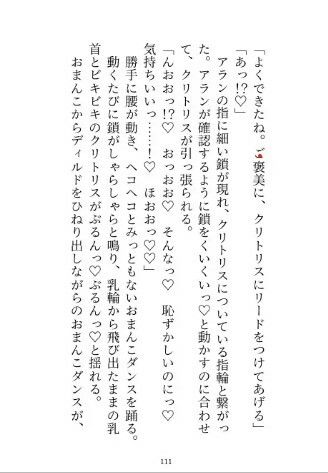 「よくできたね。ご褒美に、クリトリスにリードをつけてあげる」
「あっ!?♡」
アランの指に細い鎖が現れ、クリトリスについている指輪と繋がっ
た。アランが確認するように鎖をくいくいっ♡と動かすのに合わせ
て、クリトリスが引っ張られる。
「んおおっ!?♡　おっおお♡　そんなっ♡　恥ずかしいのにっ♡
気持ちいいっ……！♡　ほおおっ♡♡」
勝手に腰が動き、ヘコヘコとみっともないおまんこダンスを踊る。
動くたびに鎖がしゃらしゃらと鳴り、乳輪から飛び出たままの乳
首とビキビキのクリトリスがぷるんっ♡ぷるんっ♡と揺れる。
おまんこからディルドをひねり出しながらのおまんこダンスが、
111